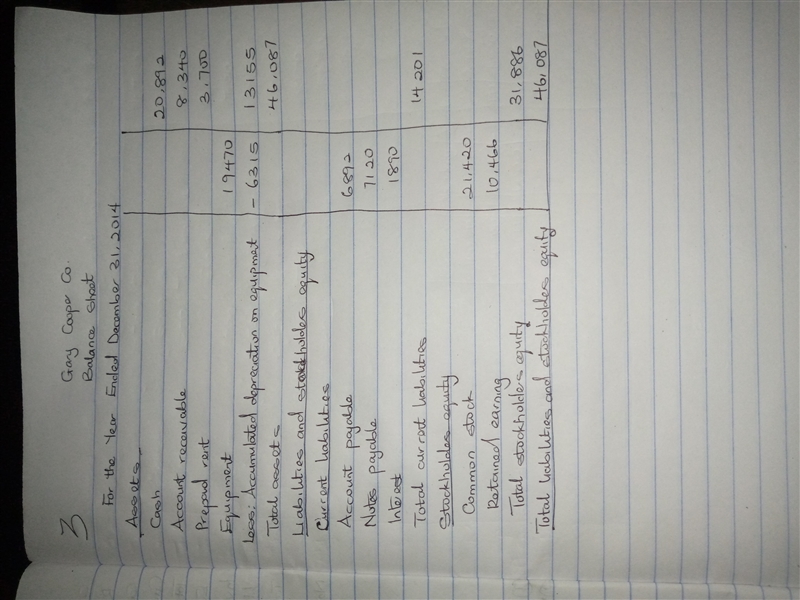 3
Gary Cooper Co.
Balance sheet
For the Year Ended December 31, 2014
Assets
Cash 20,892
Account receivable 8,340
Prepaid rent 3,700
Equipment 19470
Less: Accumulated depreciation on equipment - 6315 13155
Total assets 46,087
Liabilities and stockholdes equity
Current liabilities
Account payable 6892
Notes payable 7120
Interest 1890
Total current liabilities 14201
Stockholdes equity
Common stock 21,420
Retained earning 10,466
Total stockholdes equity 31,886
Total liabilities and stockholdes equity 46,087